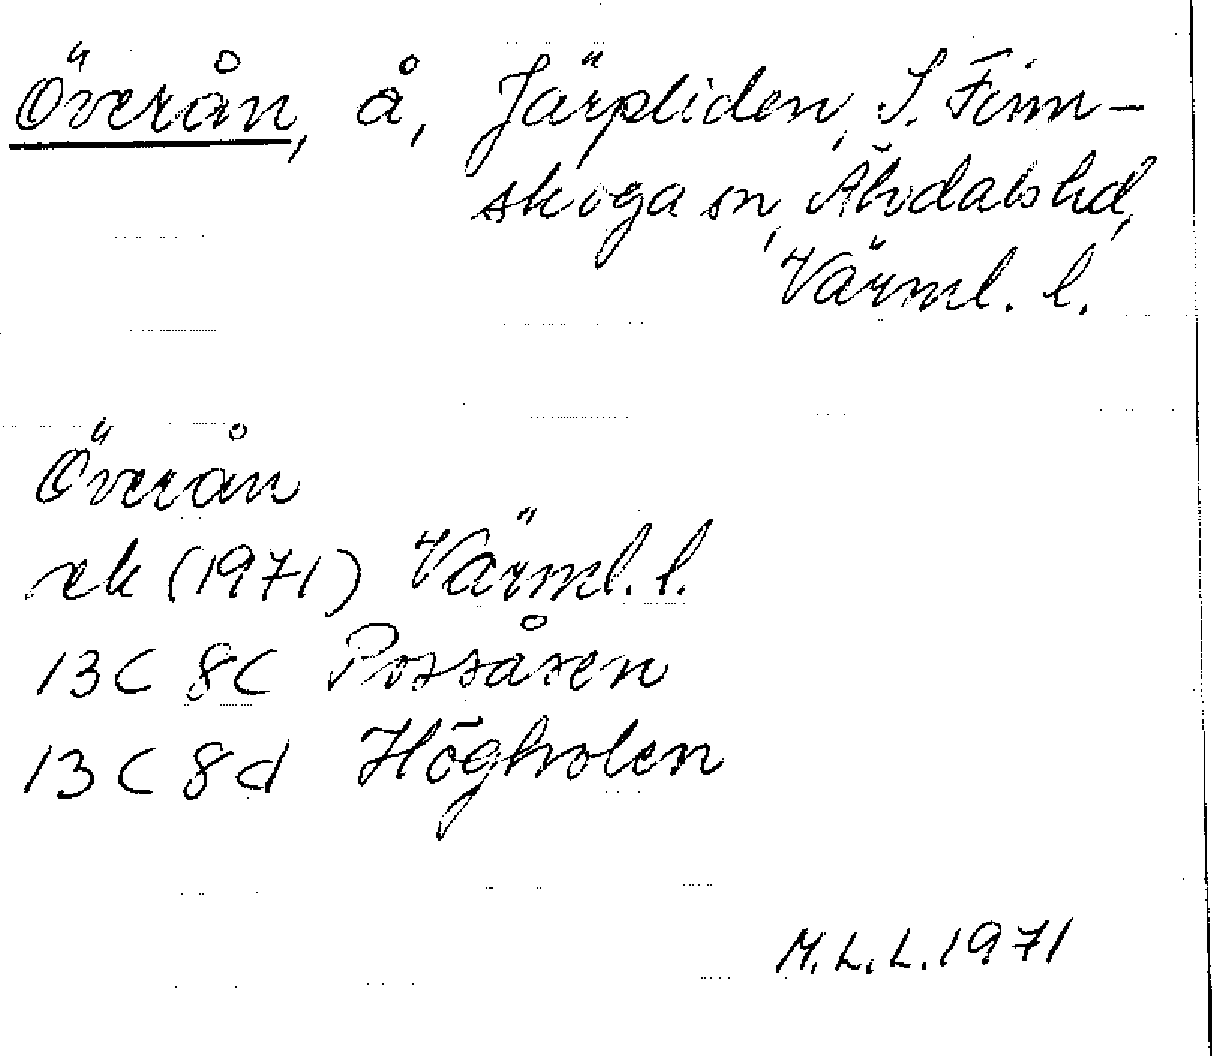 Överån, å, Järpliden, S. Finn-
skoga sn, Älvdals hd,
Värml. l.
Överån
ek (1971) Värml. l.
13C 8c Possåsen
13C 8d Högholen
M.L.L. 1971